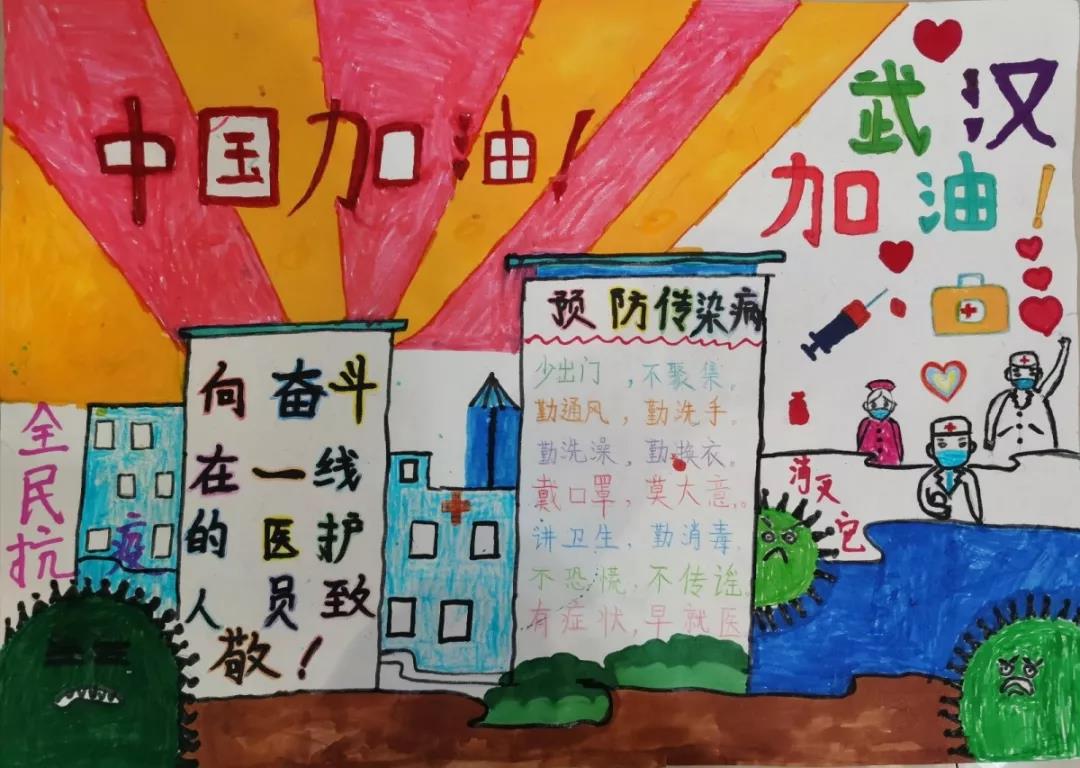 中国加油！
武汉
加油！
向奋斗
在一线
的医护
人员致
敬！
预防传染病
少出门，不聚集。
勤通风，勤洗手。
勤洗澡，勤换衣。
戴口罩，莫大意。
讲卫生，勤消毒。
不恐慌，不传谣。
有症状，早就医
全民抗疫
消灭它